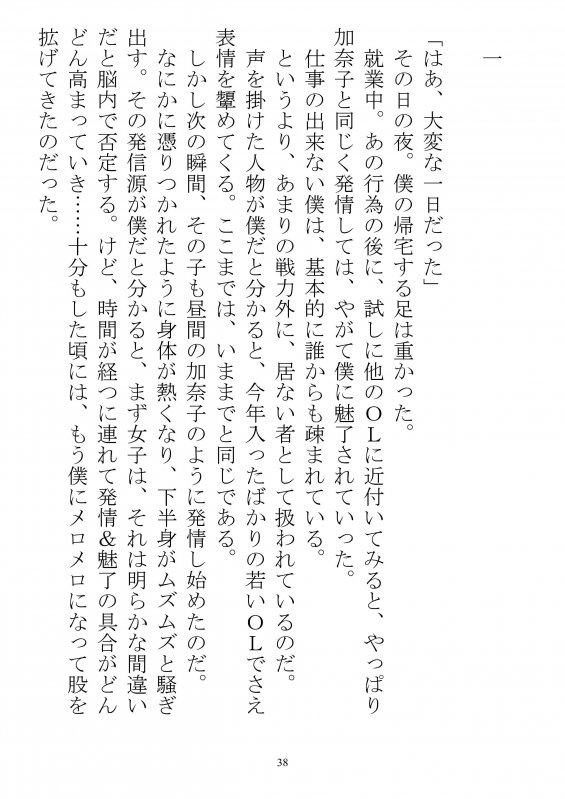 一
「はあ、大変な一日だった」
その日の夜。僕の帰宅する足は重かった。
就業中。あの行為の後に、試しに他のＯＬに近付いてみると、やっぱり
加奈子と同じく発情しては、やがて僕に魅了されていった。
仕事の出来ない僕は、基本的に誰からも疎まれている。
というより、あまりの戦力外に、居ない者として扱われているのだ。
声を掛けた人物が僕だと分かると、今年入ったばかりの若いＯＬでさえ
表情を顰めてくる。ここまでは、いままでと同じである。
しかし次の瞬間、その子も昼間の加奈子のように発情し始めたのだ。
なにかに憑りつかれたように身体が熱くなり、下半身がムズムズと騒ぎ
出す。その発信源が僕だと分かると、まず女子は、それは明らかな間違い
だと脳内で否定する。けど、時間が経つに連れて発情＆魅了の具合がどん
どん高まっていき……十分もした頃には、もう僕にメロメロになって股を
拡げてきたのだった。
38